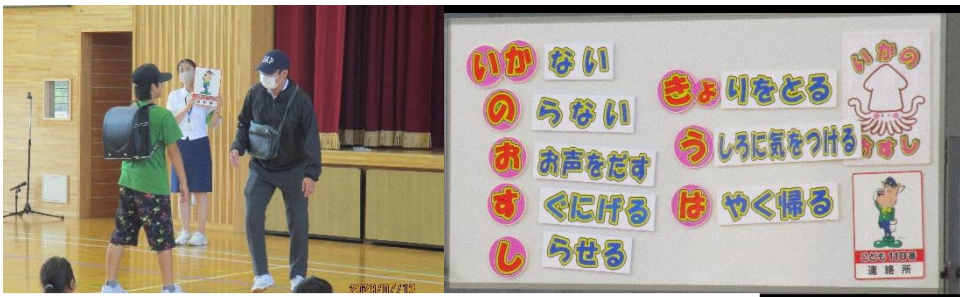 いかない
のらない
おお声をだす
すぐにげる
しらせる
きょりをとる
うしろに気をつける
はやく帰る
いかの
おすし
こども110番
連絡所